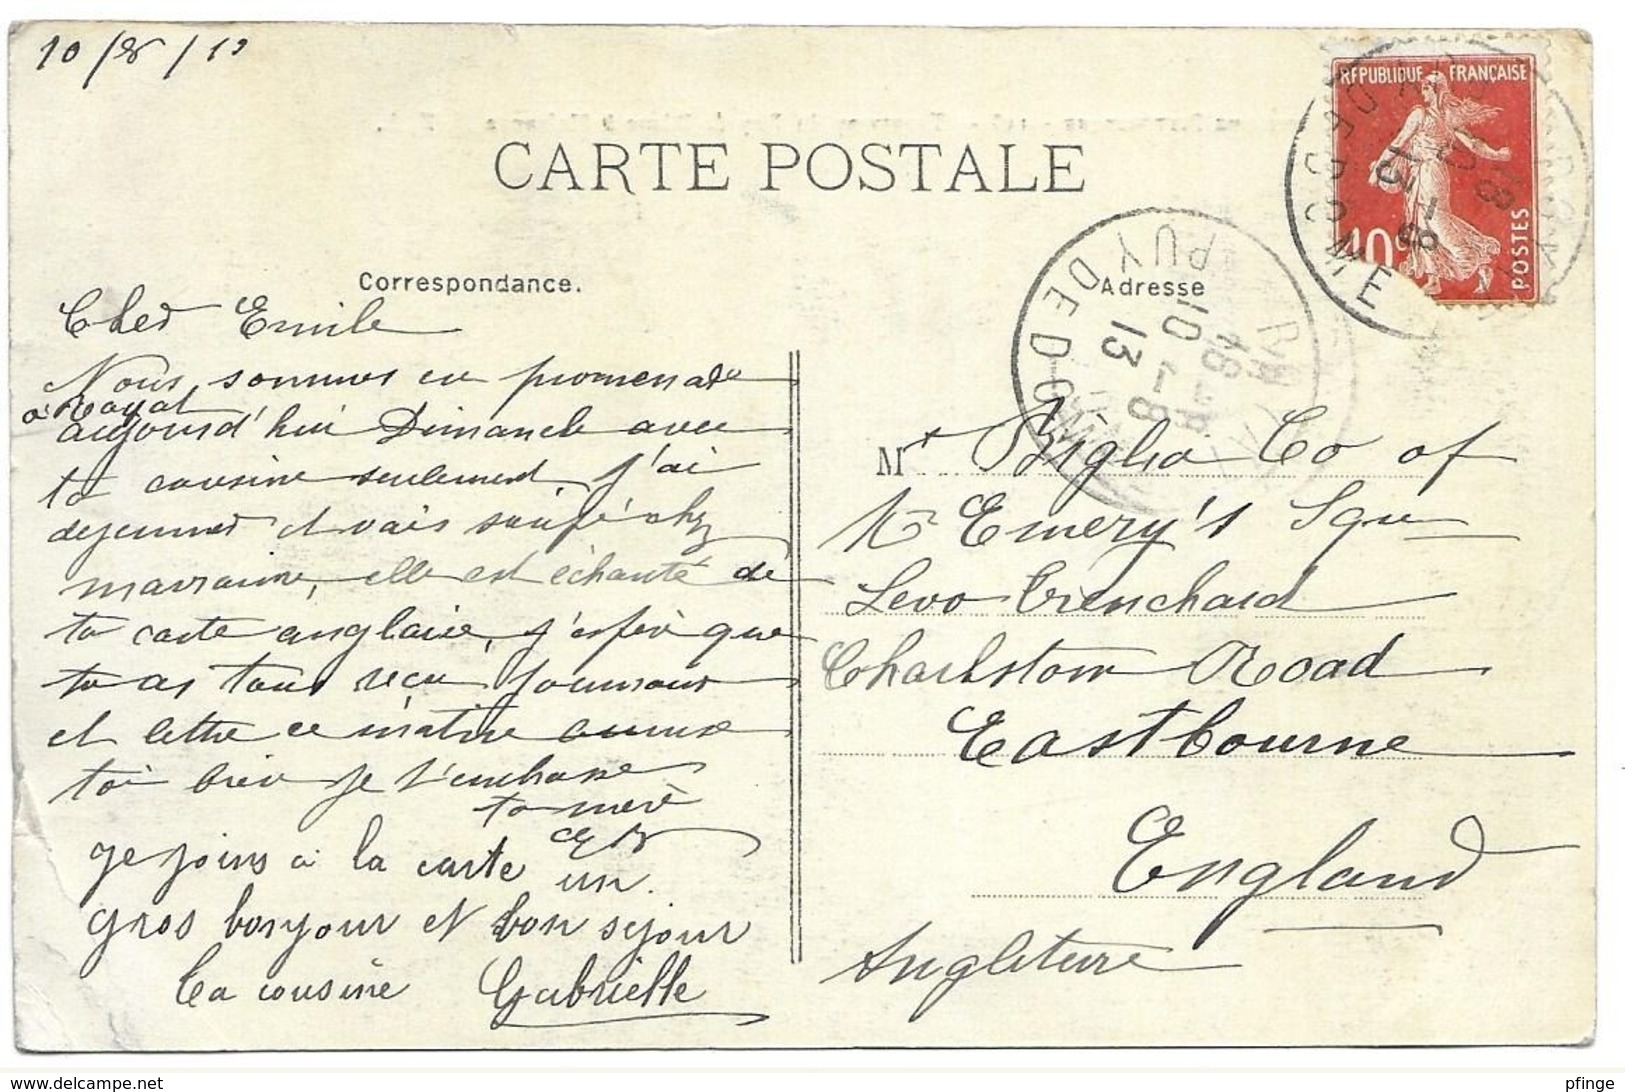 10/8/13
CARTE POSTALE
REPUBLIQUE FRANÇAISE
10c
POSTES
PUY DE DOME
18
10 - 8
13
PUY DE DOME
18
10 - 8
13
Correspondance.
Adresse
Cher Emile
Nous sommes en promenade
à Royat
aujourd'hui Dimanche avec
ta cousine seulement j'ai
dejeuner et vais soupé chez
marraine, elle est échanté de
ta carte anglaise, j'espère que
tu as tous reçu journaux
et lettre ce matin
toi bien je t'embrasse
ta mère
Je joins à la carte un
gros bonjour et bon sejour
Ta cousine Gabrielle
Mr Biglia Co of
Mr Emery's Squ
Levo Trenchard
Charlstom Road
Eastbourne
England
Angleterre
delcampe.net
pfinge